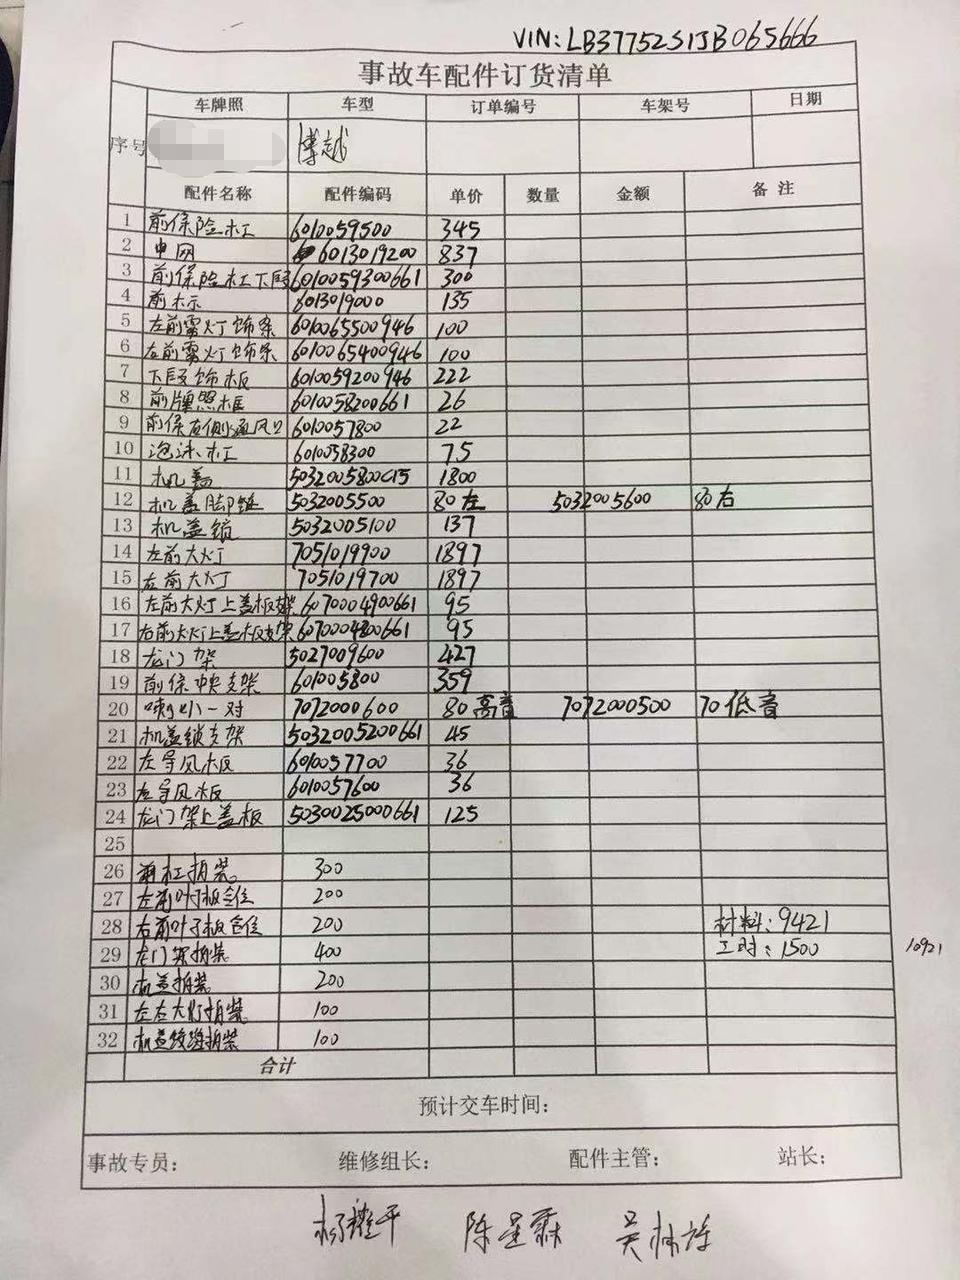 VIN: LB37752S1JB065666
事故车配件订货清单
序号 车牌照 车型 订单编号 车架号 日期
博越
配件名称 配件编码 单价 数量 金额 备注
1 前保险杠 6010059500 345
2 中网 6013019200 837
3 前保险杠下段 6010059300661 300
4 前标 6013019000 135
5 左前雾灯饰条 6010065500946 100
6 右前雾灯饰条 6010065400946 100
7 下段饰板 6010059200946 222
8 前牌照框 6010058200661 26
9 前保右侧通风口 6010057800 22
10 泡沫杠 6010058300 75
11 机盖 5032005800C15 1800
12 机盖脚链 5032005500 80左 5032005600 80右
13 机盖锁 5032005100 137
14 左前大灯 7051019900 1897
15 右前大灯 7051019700 1897
16 左前大灯上盖板支架 6070004900661 95
17 右前大灯上盖板支架 6070004800661 95
18 龙门架 5027009600 427
19 前保中央支架 601005800 359
20 喇叭一对 7072000600 80高音 7072000500 70低音
21 机盖锁支架 5032005200661 45
22 左导风板 6010057700 36
23 右导风板 6010057600 36
24 龙门架上盖板 5030025000661 125
25
26 前杠拆装 300
27 左前叶子板 200
28 右前叶子板 200 材料:9421
29 龙门架拆装 400 工时:1500 10921
30 机盖拆装 200
31 左右大灯拆装 100
32 机盖铰链拆装 100
合计
预计交车时间:
事故专员: 维修组长: 配件主管: 站长:
陈星霖